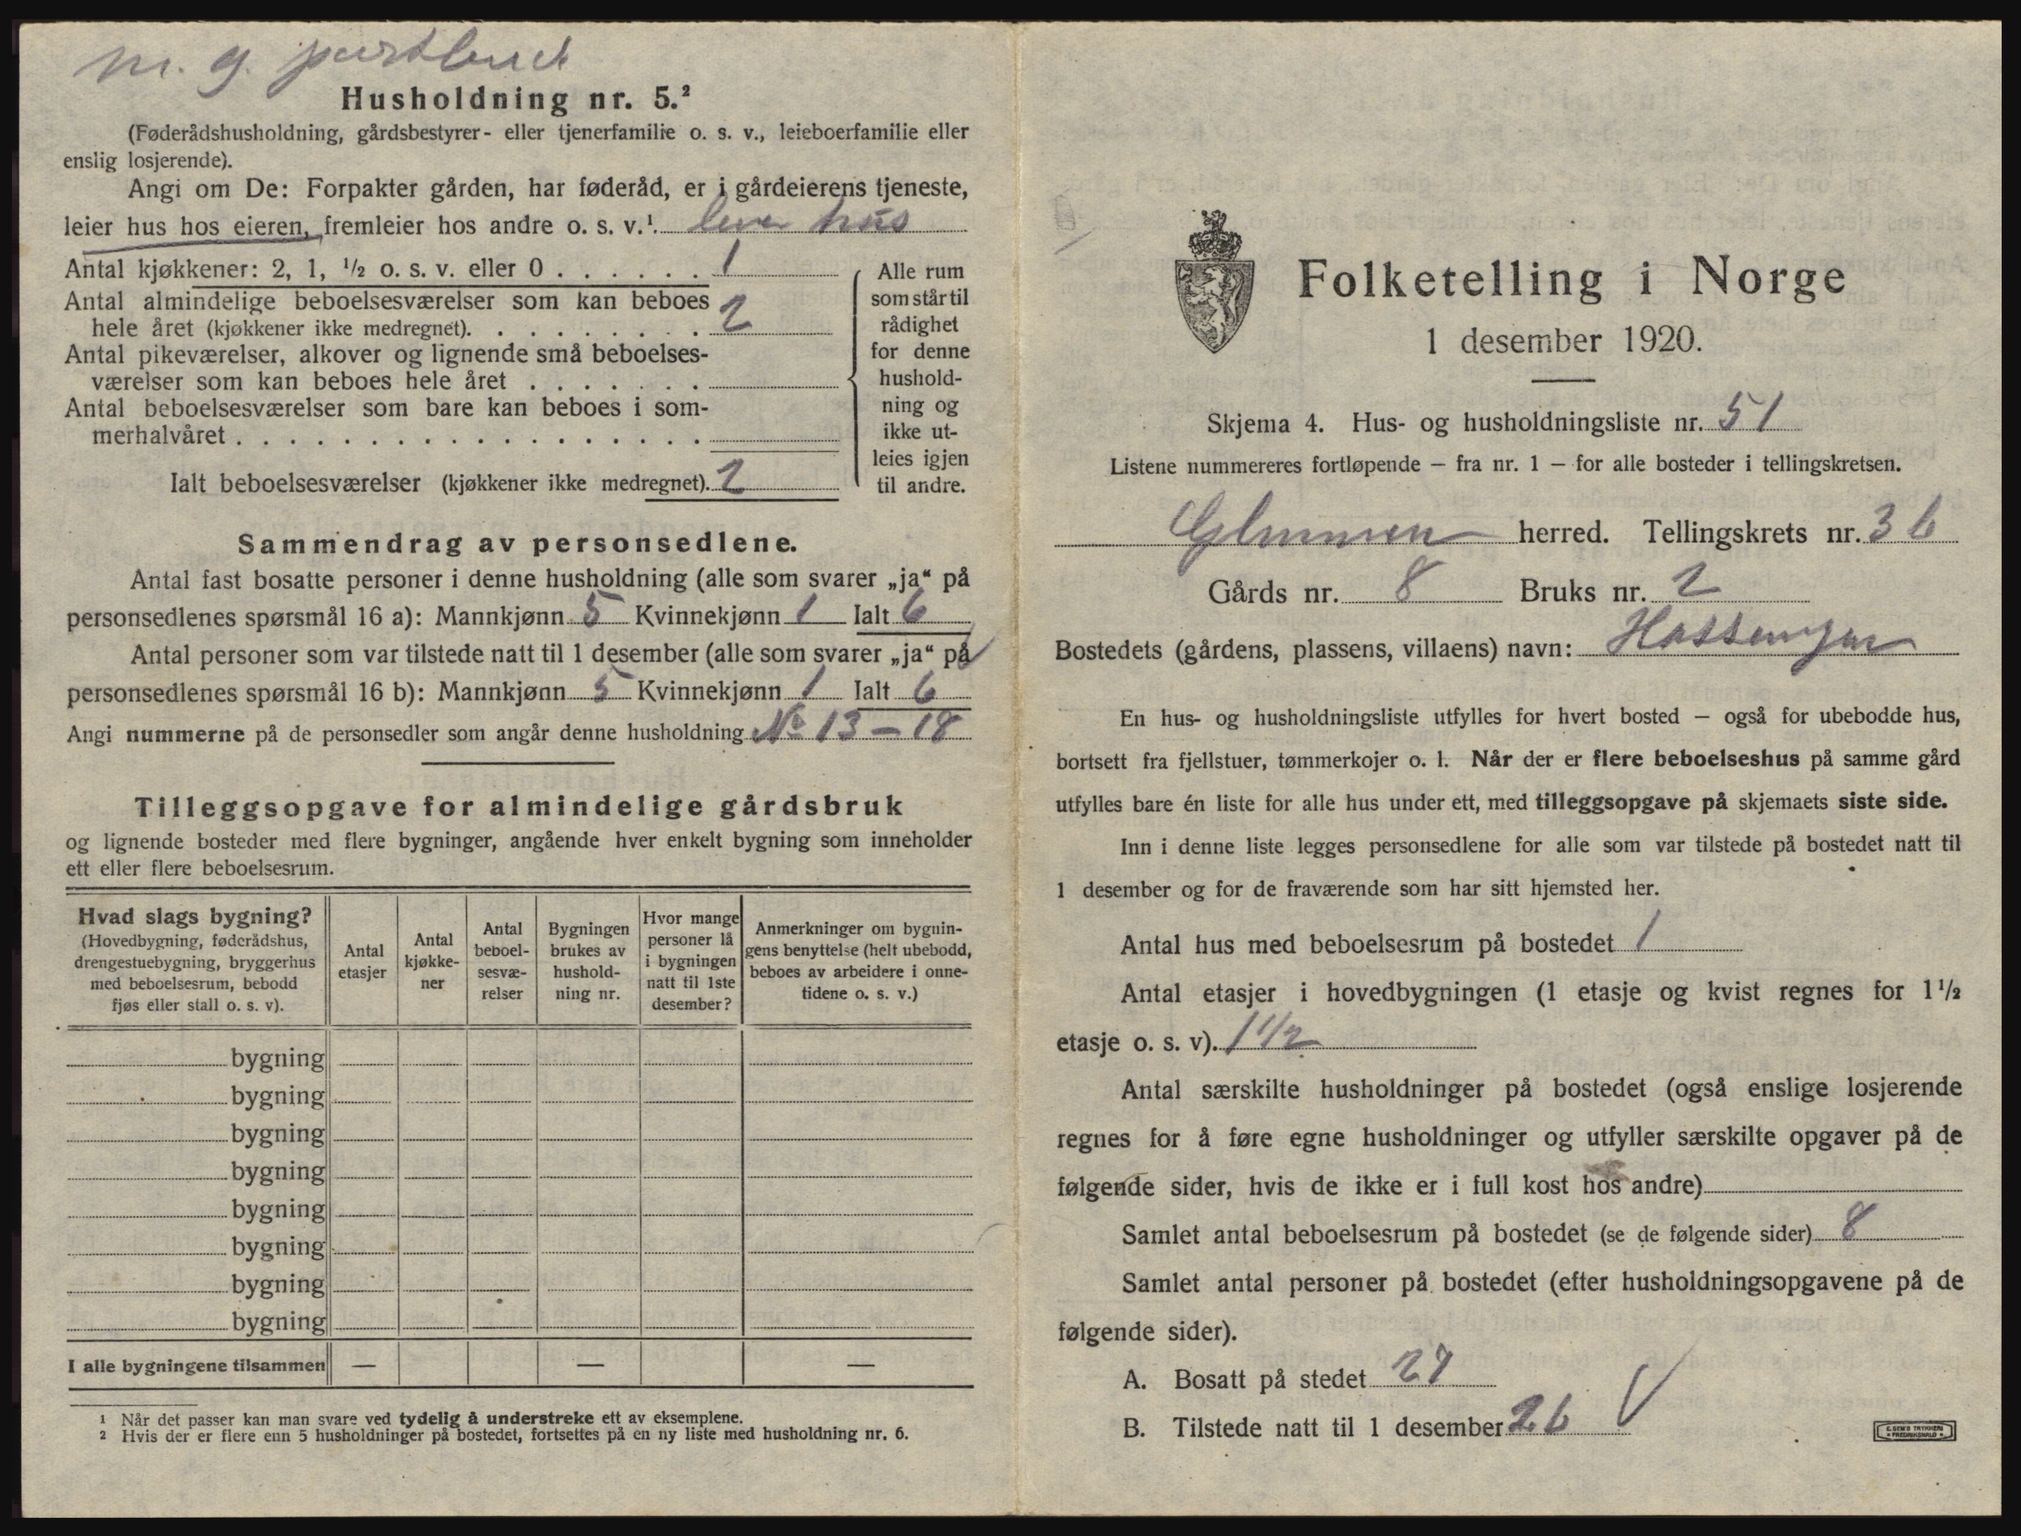 m. g.
Husholdning nr. 5.²
(Føderådshusholdning, gårdsbestyrer- eller tjenerfamilie o. s. v., leieboerfamilie eller
enslig losjerende).
Angi om De: Forpakter gården, har føderåd, er i gårdeierens tjeneste,
leier hus hos eieren, fremleier hos andre o. s. v.¹. leier hus
Antal kjøkkener: 2, 1, ½ o. s. v. eller 0 . . . . . . 1
Antal almindelige beboelsesværelser som kan beboes
hele året (kjøkkener ikke medregnet). . . . . . . . . 2
Antal pikeværelser, alkover og lignende små beboelses-
værelser som kan beboes hele året . . . . . . .
Antal beboelsesværelser som bare kan beboes i som-
merhalvåret . . . . . . . . . . . . . . . . . .
Ialt beboelsesværelser (kjøkkener ikke medregnet). 2
Alle rum
som står til
rådighet
for denne
hushold-
ning og
ikke ut-
leies igjen
til andre.
Sammendrag av personsedlene.
Antal fast bosatte personer i denne husholdning (alle som svarer „ja“ på
personsedlenes spørsmål 16 a): Mannkjønn 5 Kvinnekjønn 1 Ialt 6
Antal personer som var tilstede natt til 1 desember (alle som svarer „ja“ på
personsedlenes spørsmål 16 b): Mannkjønn 5 Kvinnekjønn 1 Ialt 6
Angi nummerne på de personsedler som angår denne husholdning No 13 – 18
Tilleggsopgave for almindelige gårdsbruk
og lignende bosteder med flere bygninger, angående hver enkelt bygning som inneholder
ett eller flere beboelsesrum.
Hvad slags bygning?
(Hovedbygning, føderådshus,
drengestuebygning, bryggerhus
med beboelsesrum, bebodd
fjøs eller stall o. s. v).
Antal
etasjer
Antal
kjøkke-
ner
Antal
beboel-
sesvæ-
relser
Bygningen
brukes av
hushold-
ning nr.
Hvor mange
personer lå
i bygningen
natt til 1ste
desember?
Anmerkninger om bygnin-
gens benyttelse (helt ubebodd,
beboes av arbeidere i onne-
tidene o. s. v.)
bygning
bygning
bygning
bygning
bygning
bygning
bygning
bygning
I alle bygningene tilsammen — — —
¹ Når det passer kan man svare ved tydelig å understreke ett av eksemplene.
² Hvis der er flere enn 5 husholdninger på bostedet, fortsettes på en ny liste med husholdning nr. 6.
Folketelling i Norge
1 desember 1920.
Skjema 4. Hus- og husholdningsliste nr. 51
Listene nummereres fortløpende – fra nr. 1 – for alle bosteder i tellingskretsen.
Glemmen herred. Tellingskrets nr. 3 b
Gårds nr. 8 Bruks nr. 2
Bostedets (gårdens, plassens, villaens) navn:
En hus- og husholdningsliste utfylles for hvert bosted – også for ubebodde hus,
bortsett fra fjellstuer, tømmerkojer o. l. Når der er flere beboelseshus på samme gård
utfylles bare én liste for alle hus under ett, med tilleggsopgave på skjemaets siste side.
Inn i denne liste legges personsedlene for alle som var tilstede på bostedet natt til
1 desember og for de fraværende som har sitt hjemsted her.
Antal hus med beboelsesrum på bostedet 1
Antal etasjer i hovedbygningen (1 etasje og kvist regnes for 1½
etasje o. s. v). 1 1/2
Antal særskilte husholdninger på bostedet (også enslige losjerende
regnes for å føre egne husholdninger og utfyller særskilte opgaver på de
følgende sider, hvis de ikke er i full kost hos andre)
Samlet antal beboelsesrum på bostedet (se de følgende sider) 8
Samlet antal personer på bostedet (efter husholdningsopgavene på de
følgende sider).
A. Bosatt på stedet 27
B. Tilstede natt til 1 desember 26
E. SEM'S TRYKKERI
FREDRIKSHALD